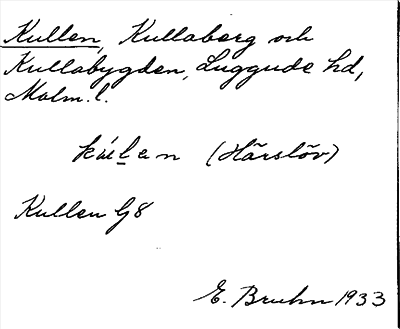 Kullen, Kullaberg och
Kullabygden, Luggude hd,
Malm. l.
kúlen (Härslöv)
Kullen G8
E. Bruhn 1933